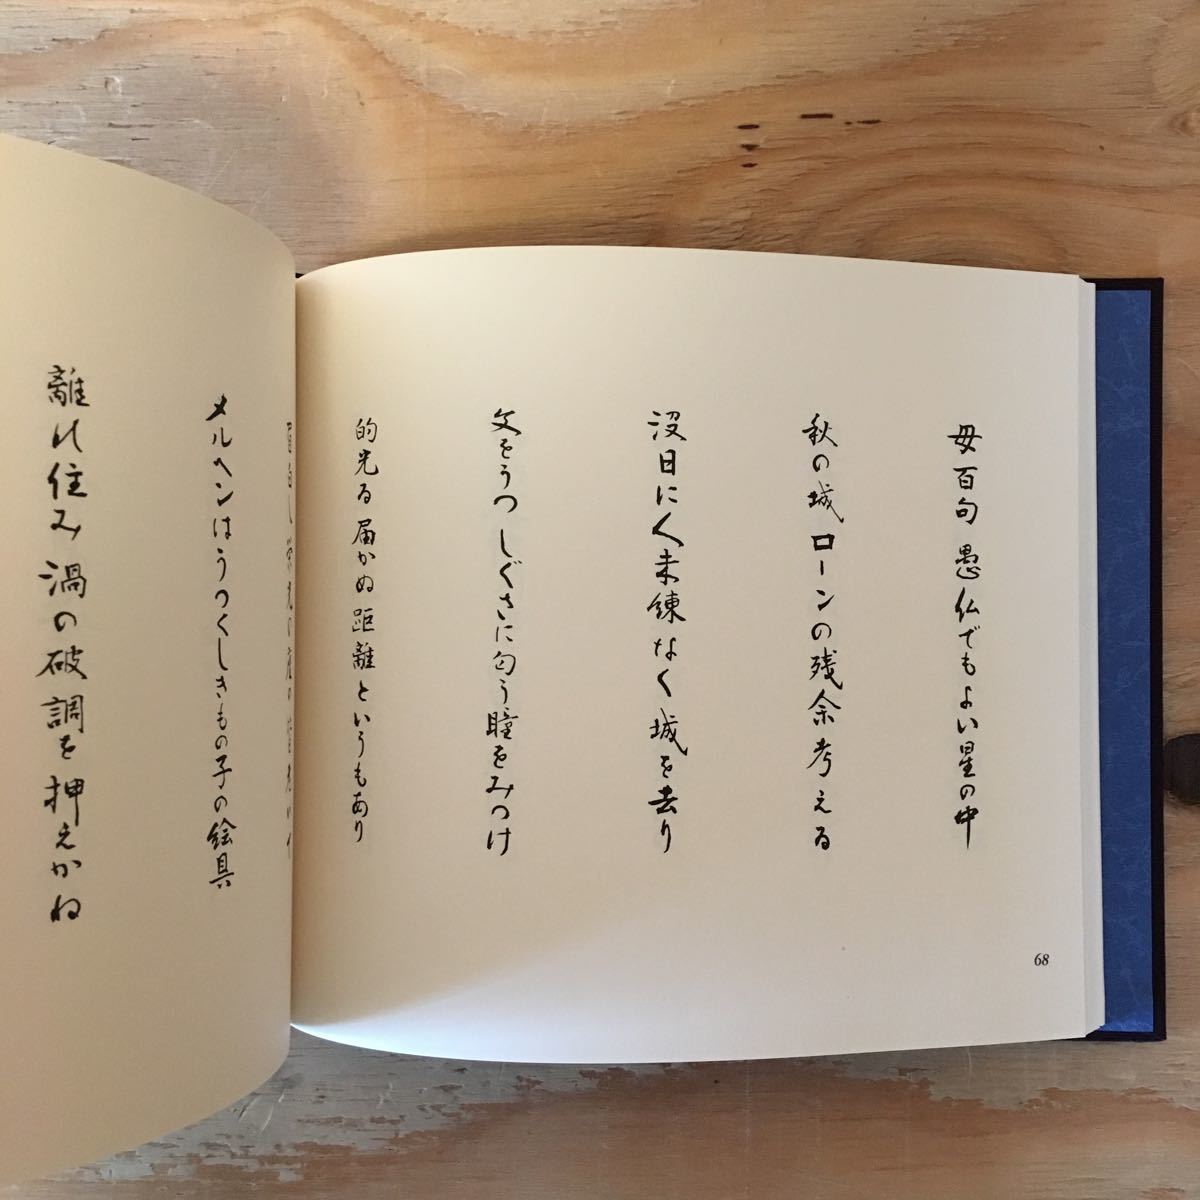 母百句愚仏でもよい星の中
秋の城ローンの残余考える
没日に人未錬なく城を去り
文をうつしぐさに匂う瞳をみつけ
的光る届かぬ距離というもあり
68
メルヘンはうつくしきもの子の絵具
離れ住み渦の破調を押えかね